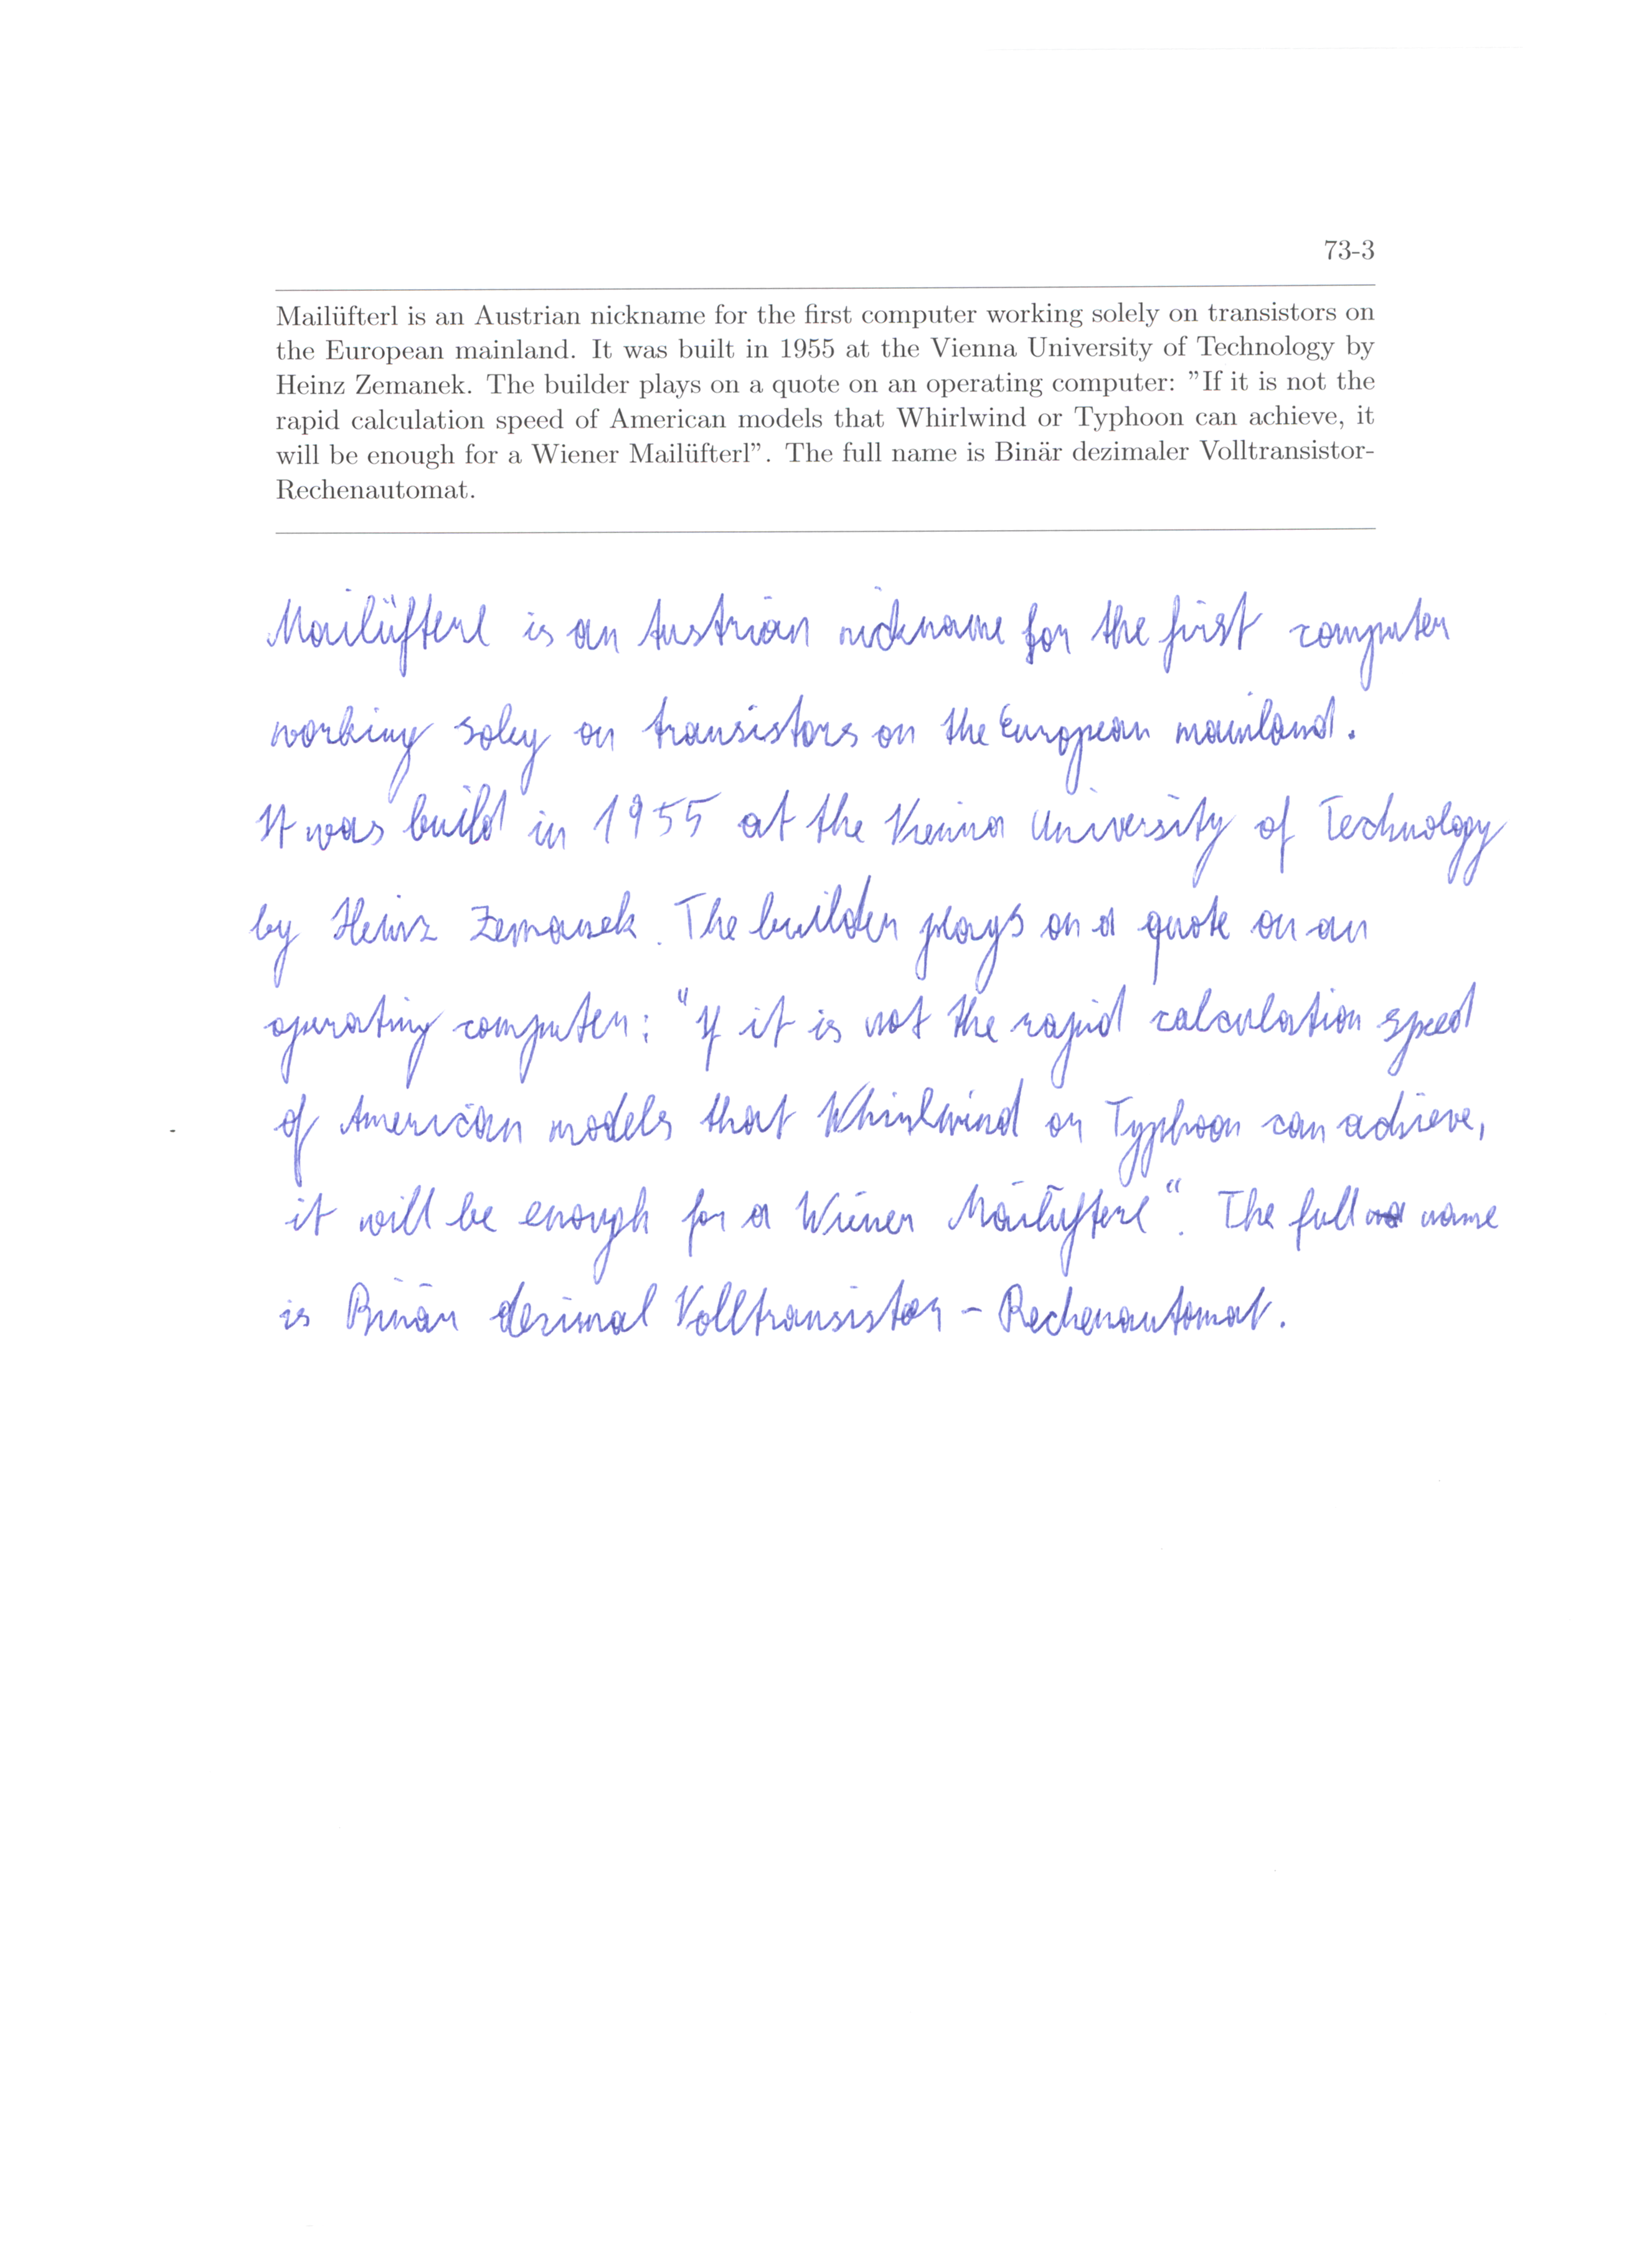 73-3
Mailüfterl is an Austrian nickname for the first computer working solely on transistors on
the European mainland. It was built in 1955 at the Vienna University of Technology by
Heinz Zemanek. The builder plays on a quote on an operating computer: ”If it is not the
rapid calculation speed of American models that Whirlwind or Typhoon can achieve, it
will be enough for a Wiener Mailüfterl”. The full name is Binär dezimaler Volltransistor-
Rechenautomat.
Mailüfterl is an Austrian nickname for the first computer
working soley on transistors on the European mainland.
It was build in 1955 at the Vienna University of Technology
by Heinz Zemanek. The builder plays on a quote on an
operating computer: "If it is not the rapid calculation speed
of American models that Whirlwind or Typhoon can achieve,
it will be enough for a Wiener Mailüfterl“. The full name
is Binär dezimal Volltransistor - Rechenautomat.